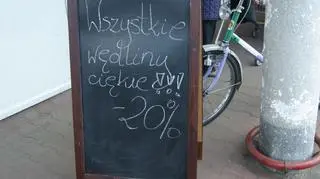 Wszystkie
wędliny
ciękie !!!
-20%